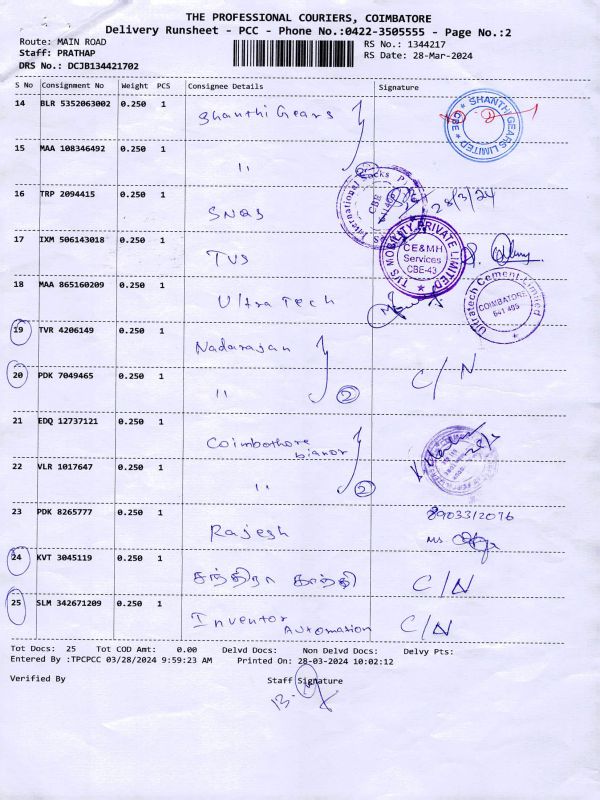 THE PROFESSIONAL COURIERS, COIMBATORE
Delivery Runsheet - PCC - Phone No.:0422-3505555 - Page No.:2
Route: MAIN ROAD
RS No.: 1344217
Staff: PRATHAP
RS Date: 28-Mar-2024
DRS No.: DCJB134421702
S No Consignment No Weight PCS Consignee Details Signature
14 BLR 5352063002 0.250 1 Shanthi Gears
SHANTHI GEARS LIMITED CBE
15 MAA 108346492 0.250 1 "
16 TRP 2094415 0.250 1 SNQS 28/3/24
International Socks P CBE
17 IXM 506143018 0.250 1 TVS
TVS MOBILITY PRIVATE LIMITED
CE&MH
Services
CBE-43
18 MAA 865160209 0.250 1 UltraTech
Ultratech Cement Limited
COIMBATORE
641 405
19 TVR 4206149 0.250 1 Nadarajan
C/N
20 PDK 7049465 0.250 1 " 2
21 EDQ 12737121 0.250 1 Coimbathore
22 VLR 1017647 0.250 1 " 2
23 PDK 8265777 0.250 1 Rajesh
24 KVT 3045119 0.250 1 சந்திரா காந்தி C/N
25 SLM 342671209 0.250 1 Inventor Automation C/N
Tot Docs: 25 Tot COD Amt: 0.00 Delvd Docs: Non Delvd Docs: Delvy Pts:
Entered By :TPCPCC 03/28/2024 9:59:23 AM Printed On: 28-03-2024 10:02:12
Verified By Staff Signature